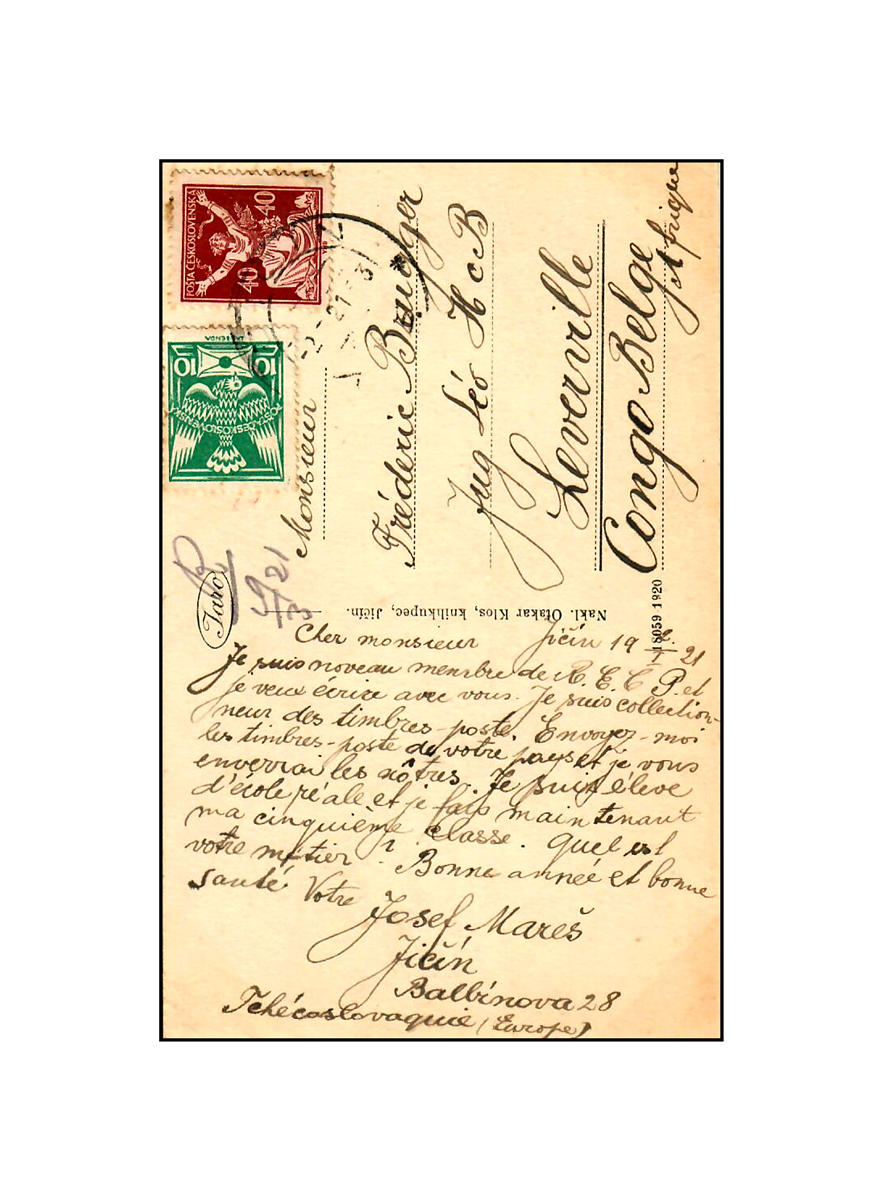 POŠTA ČESKOSLOVENSKÁ
40 40
10 10
POŠTA ČESKOSLOVENSKÁ
21
Monsieur
Fréderic
Léo H c B
Leverville
Congo Belge
Afrique
Taro
9/3 21
Nakl. Otakar Klos, knihkupec, Jičín.
18059 1920
Cher monsieur Jičín 19 21
Je suis noveau membre de R. E. C P. et
je veux écrire avec vous. Je suis collection-
neur des timbres-poste. Envoyez-moi
les timbres-poste de votre pays et je vous
enverrai les nôtres. Je suis élève
d'école réale et je fais maintenant
ma cinquième classe. Quel est
votre métier? Bonne année et bonne
santé. Votre
Josef Mareš
Jičín
Balbínova 28
Tchécoslovaquie (Europe)